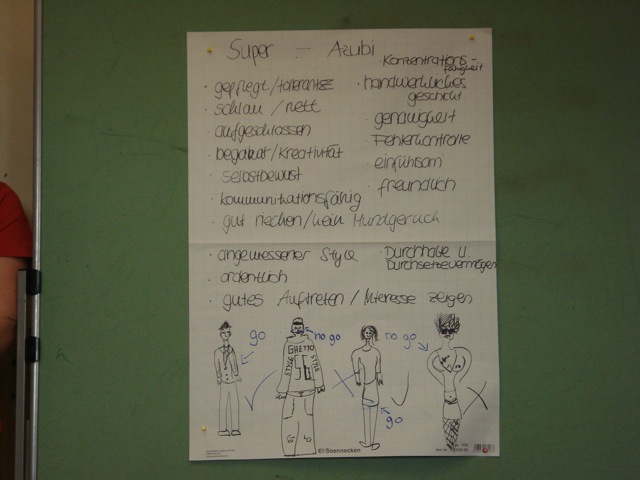 Super - Azubi
Konzentrations-
fähigkeit
· gepflegt/tolerantze
· schlau / nett
· aufgeschlossen
· begabt/Kreativität
· selbstbewust
· kommunikationsfähig
· gut riechen/kein Mundgeruch
· handwerkliches
geschickt
· genauigkeit
· Fehlerkontrolle
· einfühsam
· freundlich
· angemessener Style
· ordentlich
· gutes Auftreten / Interesse zeigen
· Durchhalte u.
Durchsetzevermögen
go
no go
GHETTO
STYLE
56
STYLE
no go
go
Soennecken